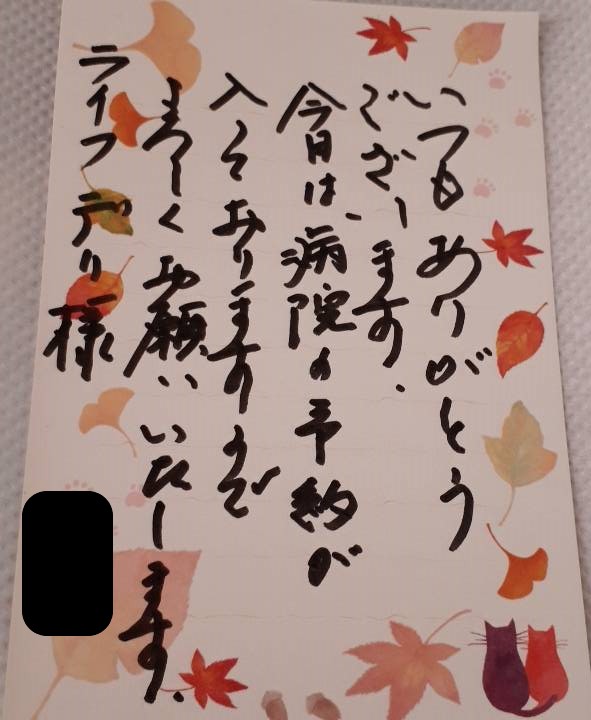 いつもありがとう
ございます.
今日は、病院の予約が
入っておりますので
よろしくお願いいたします.
ライフデリ様